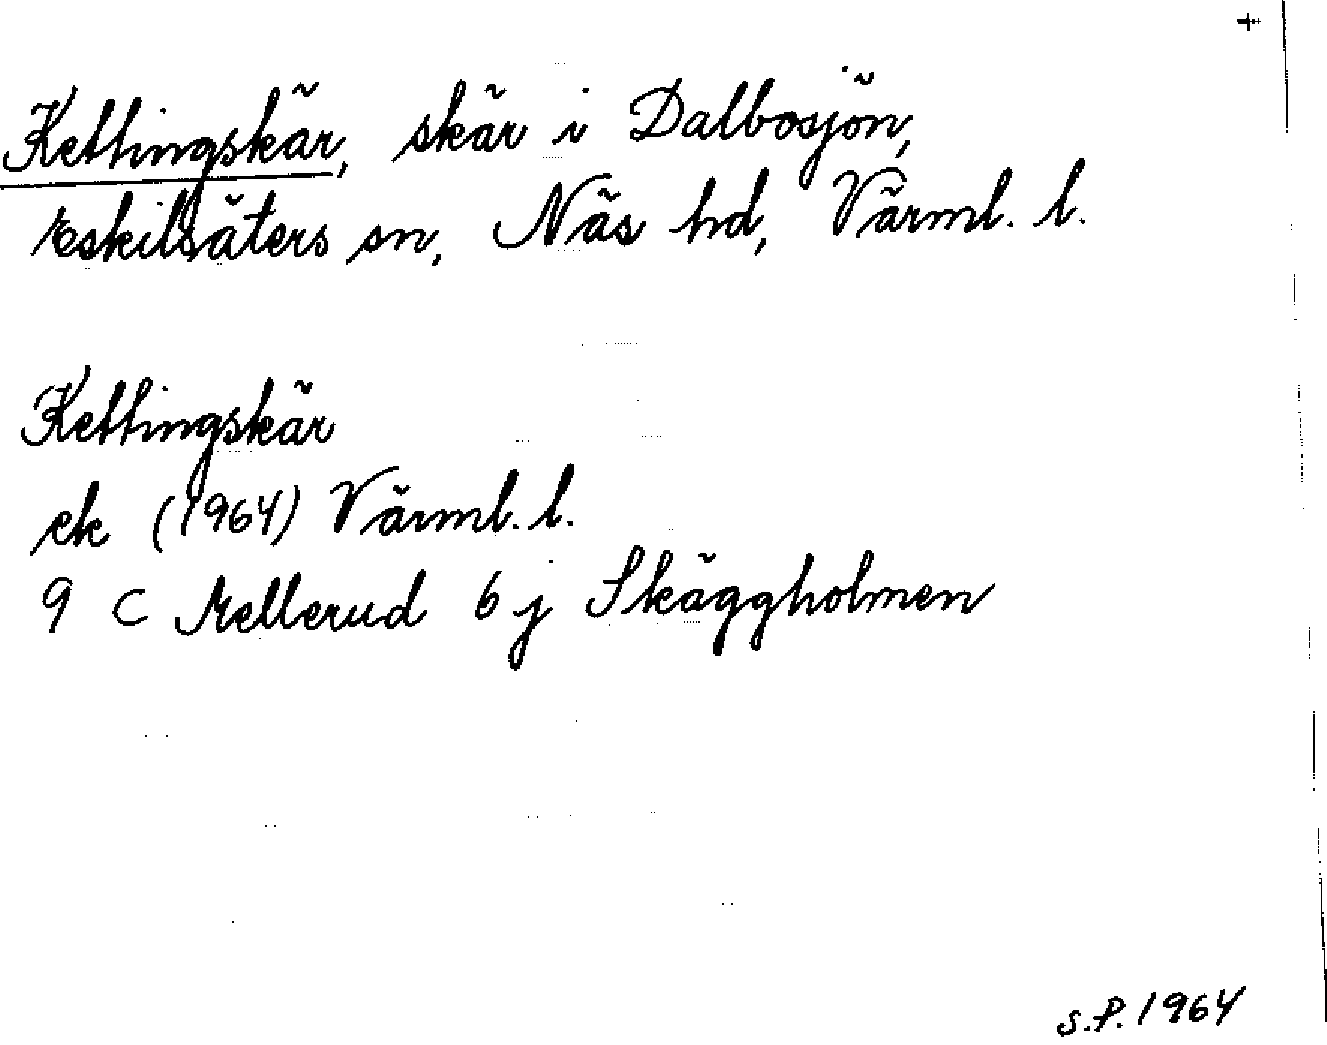 +
Kettingskär, skär i Dalbosjön,
Eskilsäters sn, Näs hd, Värml. l.
Kettingskär
ek (1964) Värml. l.
9 C Mellerud 6 j Skäggholmen
S.P. 1964